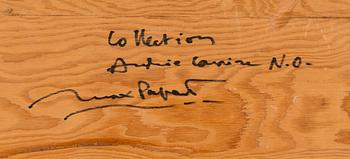 Collection
Andrée N.O.
Max Papart